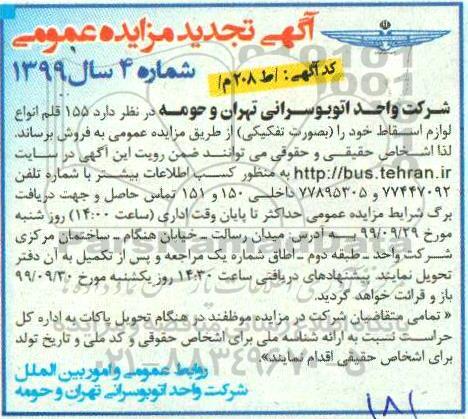 آگهی تجدید مزایده عمومی
شماره ۴ سال ۱۳۹۹
کد آگهی: /ط ۲۰۸ م/
شرکت واحد اتوبوسرانی تهران و حومه در نظر دارد ۱۵۵ قلم انواع
لوازم اسقاط خود را (بصورت تفکیکی) از طریق مزایده عمومی به فروش برساند.
لذا اشخاص حقیقی و حقوقی می توانند ضمن رویت این آگهی در سایت
http://bus.tehran.ir به منظور کسب اطلاعات بیشتر با شماره تلفن
۷۷۴۴۷۰۹۲ و ۷۷۸۹۵۳۰۵ داخلی ۱۵۰ و ۱۵۱ تماس حاصل و جهت دریافت
برگ شرایط مزایده عمومی حداکثر تا پایان وقت اداری (ساعت ۱۴:۰۰) روز شنبه
مورخ ۹۹/۰۹/۲۹ به آدرس: میدان رسالت - خیابان هنگام - ساختمان مرکزی
شرکت واحد - طبقه دوم - اطاق شماره یک مراجعه و پس از تکمیل به آن دفتر
تحویل نمایند. پیشنهادهای دریافتی ساعت ۱۴:۳۰ روز یکشنبه مورخ ۹۹/۰۹/۳۰
باز و قرائت خواهد گردید.
« تمامی متقاضیان شرکت در مزایده موظفند در هنگام تحویل پاکات به اداره کل
حراست نسبت به ارائه شناسه ملی برای اشخاص حقوقی و کد ملی و تاریخ تولد
برای اشخاص حقیقی اقدام نمایند».
روابط عمومی و امور بین الملل
شرکت واحد اتوبوسرانی تهران و حومه
ParsNamadData